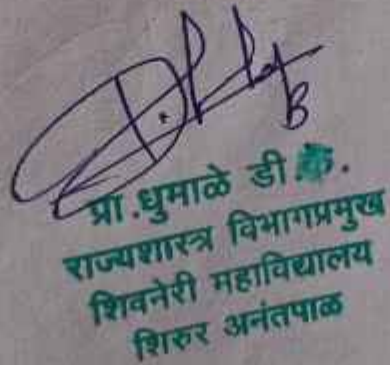 B
प्रा.धुमाळे डी.
राज्यशास्त्र विभागप्रमुख
शिवनेरी महाविद्यालय
शिरुर अनंतपाळ